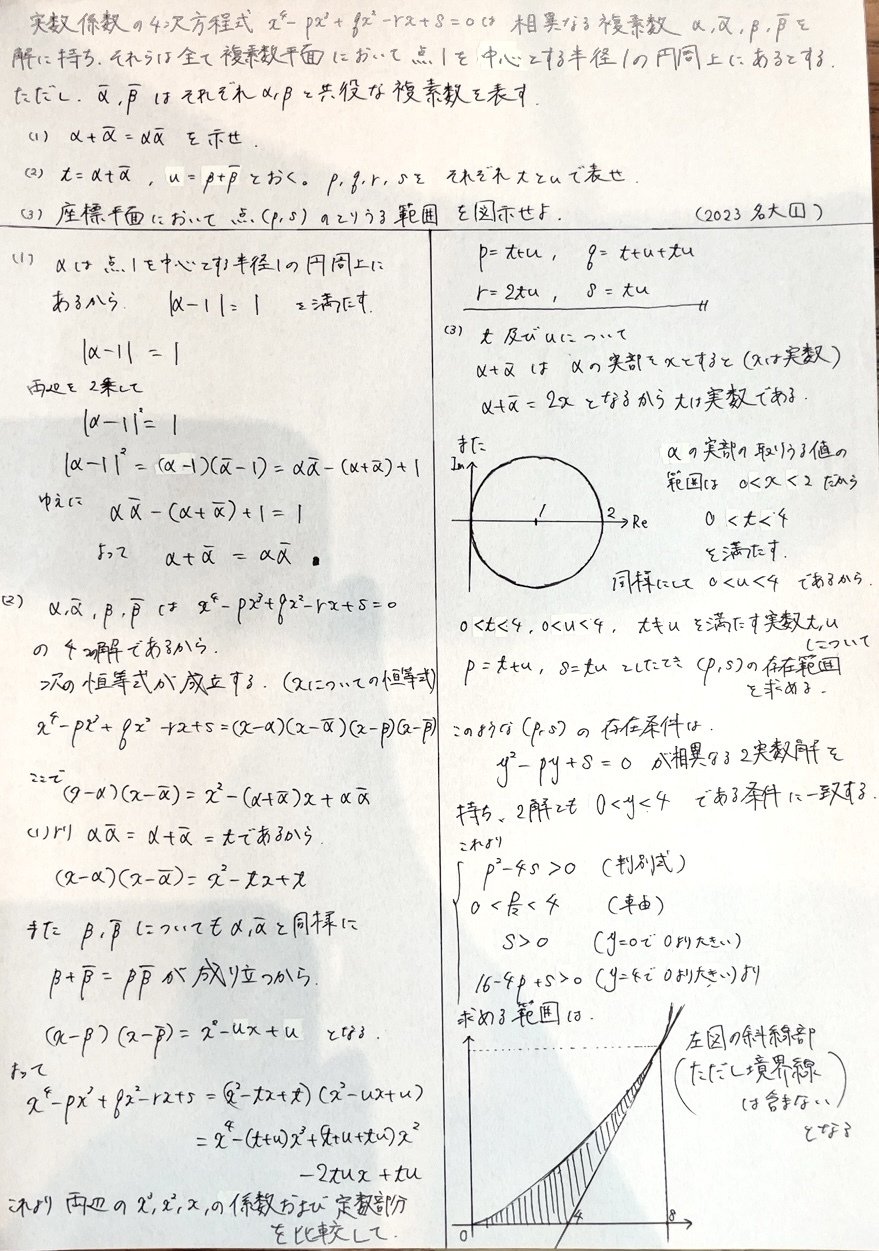 実数係数の4次方程式 x⁴-px³+qx²-rx+s=0は 相異なる複素数 α,ᾱ,β,β̄を
解に持ち、それらは全て複素数平面において点1を中心とする半径1の円周上にあるとする.
ただし、ᾱ,β̄はそれぞれα,βと共役な複素数を表す.
(1) α+ᾱ=αᾱ を示せ.
(2) t=α+ᾱ , u=β+β̄とおく。p,q,r,sを それぞれtとuで表せ.
(3) 座標平面において点(p,s)のとりうる範囲を図示せよ. (2023 名大①)
(1) αは点1を中心とする半径1の円周上に
あるから |α-1|=1 を満たす.
|α-1| = 1
両辺を2乗して
|α-1|² = 1
|α-1|² = (α-1)(ᾱ-1) = αᾱ-(α+ᾱ)+1
ゆえに αᾱ-(α+ᾱ)+1=1
よって α+ᾱ = αᾱ ■
(2) α,ᾱ,β,β̄は x⁴-px³+qx²-rx+s=0
の4つの解であるから.
次の恒等式が成立する.(xについての恒等式)
x⁴-px³+qx²-rx+s=(x-α)(x-ᾱ)(x-β)(x-β̄)
ここで (x-α)(x-ᾱ)=x²-(α+ᾱ)x+αᾱ
(1)より αᾱ=α+ᾱ=tであるから.
(x-α)(x-ᾱ)=x²-tx+t
また β,β̄についてもα,ᾱと同様に
β+β̄=ββ̄が成り立つから.
(x-β)(x-β̄)=x²-ux+u となる.
よって
x⁴-px³+qx²-rx+s=(x²-tx+t)(x²-ux+u)
=x⁴-(t+u)x³+(t+u+tu)x²
-2tux+tu
これより 両辺のx³,x²,x,の係数および定数部分
を比較して.
p=t+u , q=t+u+tu
r=2tu , s=tu
(3) t及びuについて
α+ᾱは αの実部をxとすると(xは実数)
α+ᾱ=2xとなるからtは実数である.
また
Im
1
2
Re
αの実部の取りうる値の
範囲は 0<x<2だから
0<t<4
を満たす.
同様にして 0<u<4 であるから.
0<t<4, 0<u<4, t≠uを満たす実数t,u
について
p=t+u, s=tuとしたとき(p,s)の存在範囲
を求める.
このような(p,s)の存在条件は.
y²-py+s=0 が相異なる2実数解を
持ち、2解とも 0<y<4 である条件に一致する.
これより
p²-4s>0 (判別式)
0<p/2<4 (車由)
s>0 (y=0で0より大きい)
16-4p+s>0 (y=4で0より大きい)より
求める範囲は.
0
4
8
左図の斜線部
(ただし境界線
は含まない)
となる